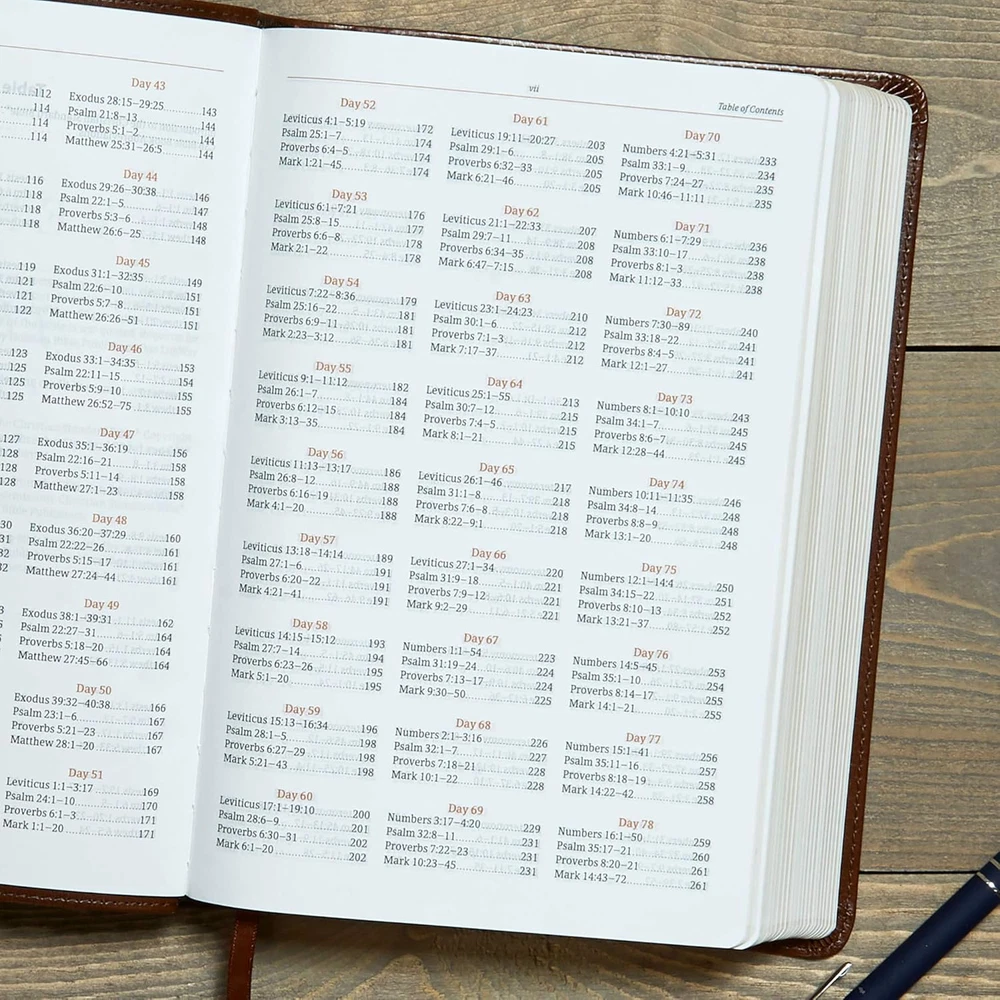 112
114
114
114
116
118
118
118
119
121
121
122
123
125
125
125
127
128
128
128
30
31
32
32
Day 43
Exodus 28:15–29:25 143
Psalm 21:8–13 144
Proverbs 5:1–2 144
Matthew 25:31–26:5 144
Day 44
Exodus 29:26–30:38 146
Psalm 22:1–5 147
Proverbs 5:3–6 148
Matthew 26:6–25 148
Day 45
Exodus 31:1–32:35 149
Psalm 22:6–10 151
Proverbs 5:7–8 151
Matthew 26:26–51 151
Day 46
Exodus 33:1–34:35 153
Psalm 22:11–15 154
Proverbs 5:9–10 155
Matthew 26:52–75 155
Day 47
Exodus 35:1–36:19 156
Psalm 22:16–21 158
Proverbs 5:11–14 158
Matthew 27:1–23 158
Day 48
Exodus 36:20–37:29 160
Psalm 22:22–26 161
Proverbs 5:15–17 161
Matthew 27:24–44 161
Day 49
Exodus 38:1–39:31 162
Psalm 22:27–31 164
Proverbs 5:18–20 164
Matthew 27:45–66 164
Day 50
Exodus 39:32–40:38 166
Psalm 23:1–6 167
Proverbs 5:21–23 167
Matthew 28:1–20 167
Day 51
Leviticus 1:1–3:17 169
Psalm 24:1–10 170
Proverbs 6:1–3 171
Mark 1:1–20 171
vii
Table of Contents
Day 52
Leviticus 4:1–5:19 172
Psalm 25:1–7 174
Proverbs 6:4–5 174
Mark 1:21–45 174
Day 53
Leviticus 6:1–7:21 176
Psalm 25:8–15 177
Proverbs 6:6–8 178
Mark 2:1–22 178
Day 54
Leviticus 7:22–8:36 179
Psalm 25:16–22 181
Proverbs 6:9–11 181
Mark 2:23–3:12 181
Day 55
Leviticus 9:1–11:12 182
Psalm 26:1–7 184
Proverbs 6:12–15 184
Mark 3:13–35 184
Day 56
Leviticus 11:13–13:17 186
Psalm 26:8–12 188
Proverbs 6:16–19 188
Mark 4:1–20 188
Day 57
Leviticus 13:18–14:14 189
Psalm 27:1–6 191
Proverbs 6:20–22 191
Mark 4:21–41 191
Day 58
Leviticus 14:15–15:12 193
Psalm 27:7–14 194
Proverbs 6:23–26 195
Mark 5:1–20 195
Day 59
Leviticus 15:13–16:34 196
Psalm 28:1–5 198
Proverbs 6:27–29 198
Mark 5:21–43 198
Day 60
Leviticus 17:1–19:10 200
Psalm 28:6–9 201
Proverbs 6:30–31 202
Mark 6:1–20 202
Day 61
Leviticus 19:11–20:27 203
Psalm 29:1–6 205
Proverbs 6:32–33 205
Mark 6:21–46 205
Day 62
Leviticus 21:1–22:33 207
Psalm 29:7–11 208
Proverbs 6:34–35 208
Mark 6:47–7:15 208
Day 63
Leviticus 23:1–24:23 210
Psalm 30:1–6 212
Proverbs 7:1–3 212
Mark 7:17–37 212
Day 64
Leviticus 25:1–55 213
Psalm 30:7–12 215
Proverbs 7:4–5 215
Mark 8:1–21 215
Day 65
Leviticus 26:1–46 217
Psalm 31:1–8 218
Proverbs 7:6–8 218
Mark 8:22–9:1 218
Day 66
Leviticus 27:1–34 220
Psalm 31:9–18 221
Proverbs 7:9–12 221
Mark 9:2–29 221
Day 67
Numbers 1:1–54 223
Psalm 31:19–24 224
Proverbs 7:13–17 224
Mark 9:30–50 225
Day 68
Numbers 2:1–3:16 226
Psalm 32:1–7 227
Proverbs 7:18–21 228
Mark 10:1–22 228
Day 69
Numbers 3:17–4:20 229
Psalm 32:8–11 231
Proverbs 7:22–23 231
Mark 10:23–45 231
Day 70
Numbers 4:21–5:31 233
Psalm 33:1–9 234
Proverbs 7:24–27 235
Mark 10:46–11:11 235
Day 71
Numbers 6:1–7:29 236
Psalm 33:10–17 238
Proverbs 8:1–3 238
Mark 11:12–33 238
Day 72
Numbers 7:30–89 240
Psalm 33:18–22 241
Proverbs 8:4–5 241
Mark 12:1–27 241
Day 73
Numbers 8:1–10:10 243
Psalm 34:1–7 245
Proverbs 8:6–7 245
Mark 12:28–44 245
Day 74
Numbers 10:11–11:35 246
Psalm 34:8–14 248
Proverbs 8:8–9 248
Mark 13:1–20 248
Day 75
Numbers 12:1–14:4 250
Psalm 34:15–22 251
Proverbs 8:10–13 252
Mark 13:21–37 252
Day 76
Numbers 14:5–45 253
Psalm 35:1–10 254
Proverbs 8:14–17 255
Mark 14:1–21 255
Day 77
Numbers 15:1–41 256
Psalm 35:11–16 257
Proverbs 8:18–19 258
Mark 14:22–42 258
Day 78
Numbers 16:1–50 259
Psalm 35:17–21 260
Proverbs 8:20–21 261
Mark 14:43–72 261